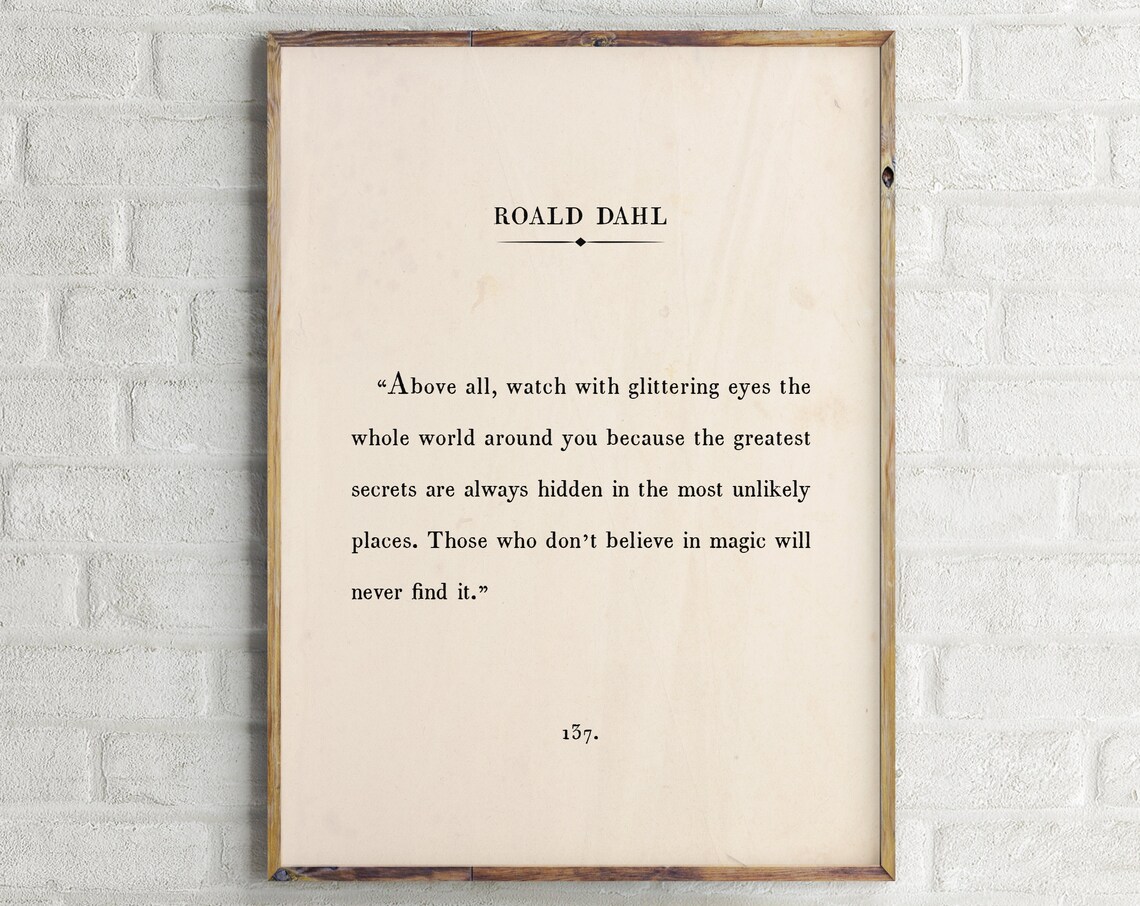 ROALD DAHL
“Above all, watch with glittering eyes the
whole world around you because the greatest
secrets are always hidden in the most unlikely
places. Those who don’t believe in magic will
never find it.”
137.